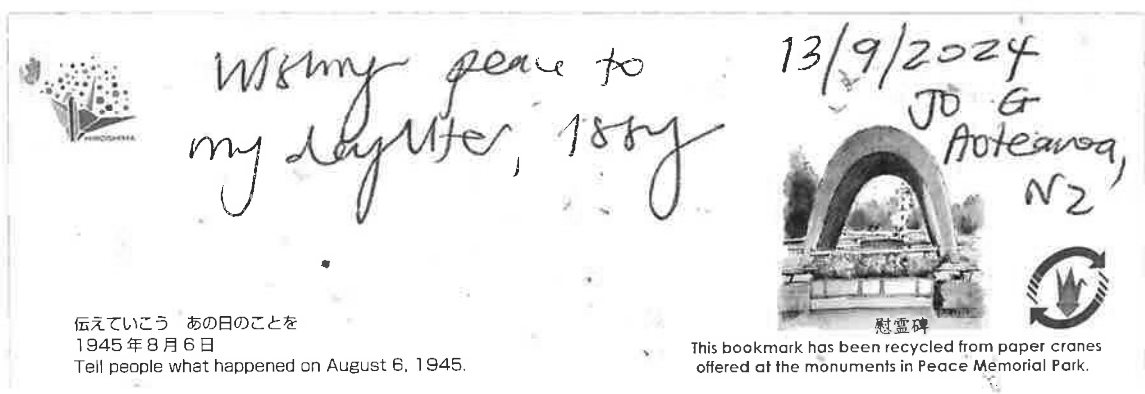 Wishing peace to
my daughter, Issy
13/9/2024
JO G
Aotearoa,
NZ
HIROSHIMA
伝えていこう　あの日のことを
1945年8月6日
Tell people what happened on August 6, 1945.
慰霊碑
This bookmark has been recycled from paper cranes
offered at the monuments in Peace Memorial Park.